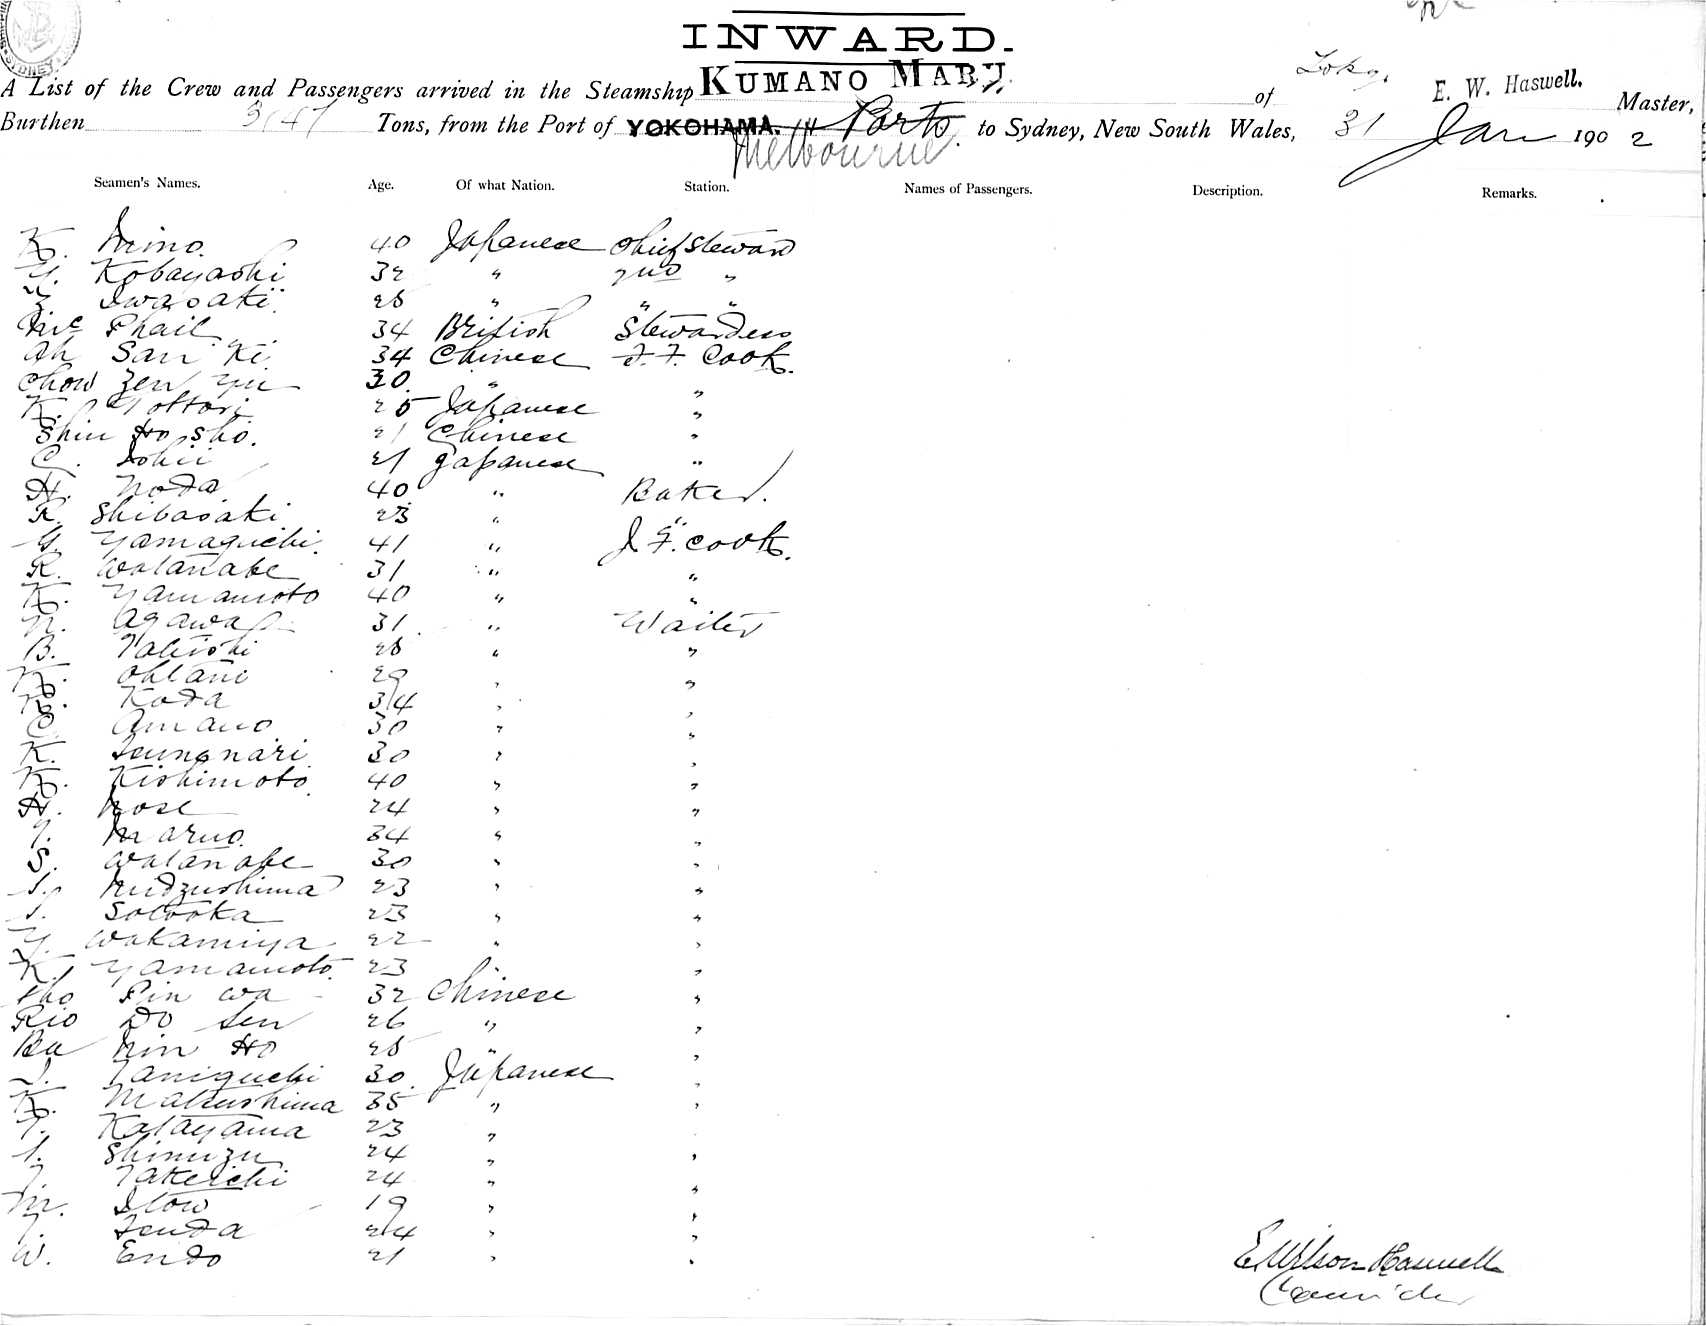 INWARD.
A List of the Crew and Passengers arrived in the Steamship KUMANO MARU. of Tokyo, E. W. Haswell. Master,
Burthen 3147 Tons, from the Port of YOKOHAMA. Ports Melbourne to Sydney, New South Wales, 31 Jan 1902
Seamen's Names. Age. Of what Nation. Station. Names of Passengers. Description. Remarks.
K. Mino. 40 Japanese Chief Steward
Y. Kobayashi 32 " 2nd "
Iwasaki 28 " " "
Mrs Phail 34 British Stewardess
Ah San Ki 34 Chinese F. F. Cook.
Chow Zen Yu 30 " "
K. Tottori 25 Japanese "
Shiu Ho Sho. 21 Chinese "
C. Ishii 21 Japanese "
H. Noda 40 " Baker.
K. Shibasaki 23 " "
G. Yamaguchi. 41 " J. F. Cook.
R. Watanabe 31 " "
K. Yamamoto 40 " "
N. Agawa 31 " Waiter
B. Tateishi 28 " "
K. Ohtani 29 " "
K. Koda 34 " "
C. Amano 30 " "
K. Tsunenari 30 " "
K. Kishimoto. 40 " "
H. Nose 24 " "
T. Maruo. 34 " "
S. Watanabe 30 " "
S. Midzushima 23 " "
S. Sotooka 23 " "
Y. Wakamiya 22 " "
K. Yamamoto. 23 " "
Sho Pin Wa 32 Chinese "
Rio Do Sen 26 " "
Ba Min Ho 28 " "
S. Taniguchi 30 Japanese "
K. Matsushima 35 " "
T. Katayama 23 " "
S. Shimizu 24 " "
T. Takeichi 24 " "
M. Itow 19 " "
T. Tsuda 24 " "
W. Endo 21 " "
E Wilson Haswell
Commander